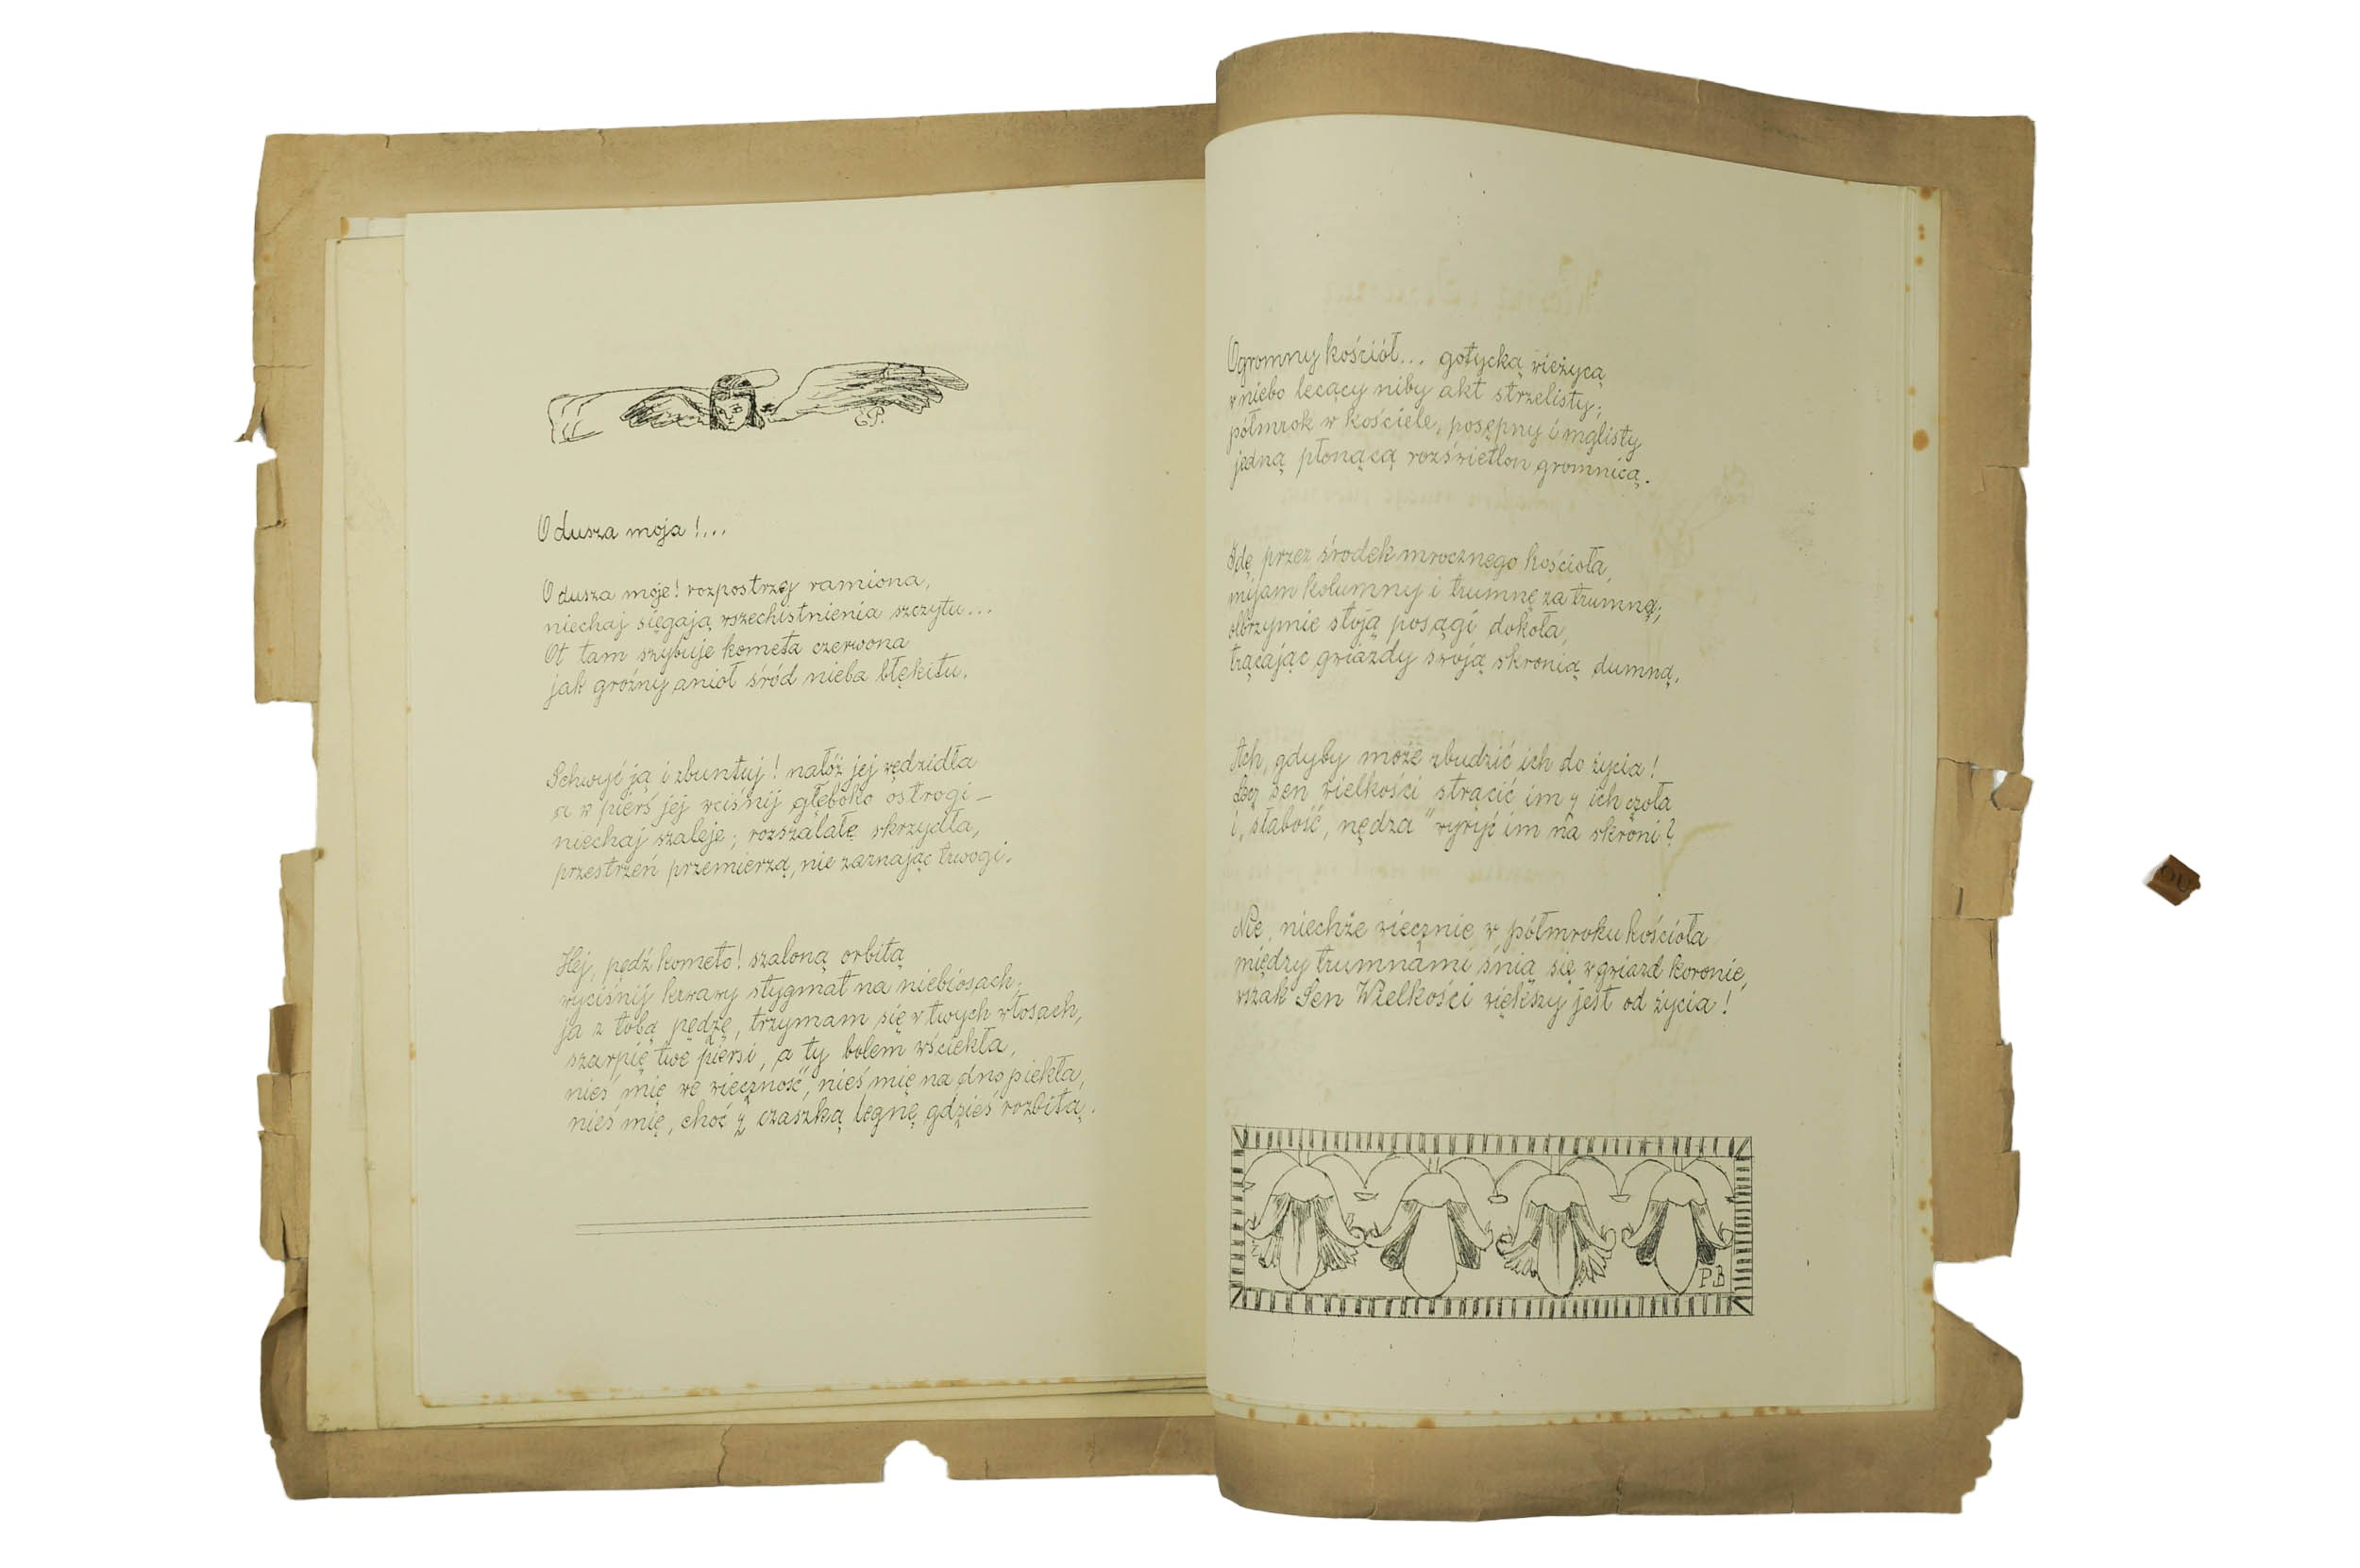 O dusza moja!...
O dusza moje! rozpostrzej ramiona,
niechaj sięgają wszechistnienia szczytu...
Ot tam szybuje kometa czerwona
jak groźny anioł śród nieba błękitu.
Schwyć ją i zbuntuj! nałóż jej wędzidła
a w pierś jej wciśnij głęboko ostrogi –
niechaj szaleje; rozszalałe skrzydła,
przestrzeń przemierzą, nie zaznając trwogi.
Hej, pędź kometo! szaloną orbitą
wyciśnij krwawy stygmat na niebiosach;
ja z tobą pędzę, trzymam się w twych włosach,
szarpię twe piersi, a ty bolem wściekła,
nieś mię we wieczność, nieś mię na dno piekła,
nieś mię, choć z czaszką legnę gdzieś rozbitą.
Ogromny kościół... gotycką wieżycą
w niebo lecący niby akt strzelisty;
półmrok w kościele, posępny i mglisty
jedną płonącą rozświetlon gromnicą.
Idę przez środek mrocznego kościoła,
mijam kolumny i trumnę za trumną;
olbrzymie stoją posągi dokoła,
trącając gwiazdy swoją skronią dumną.
Ach, gdyby może zbudzić ich do życia!
Lecz sen wielkości strącić im z ich czoła
i „słabość, nędza" wyryć im na skroni?
Nie, niechże wiecznie w półmroku kościoła
między trumnami śnią się w gwiazd koronie,
wszak Sen Wielkości większy jest od życia!
PB